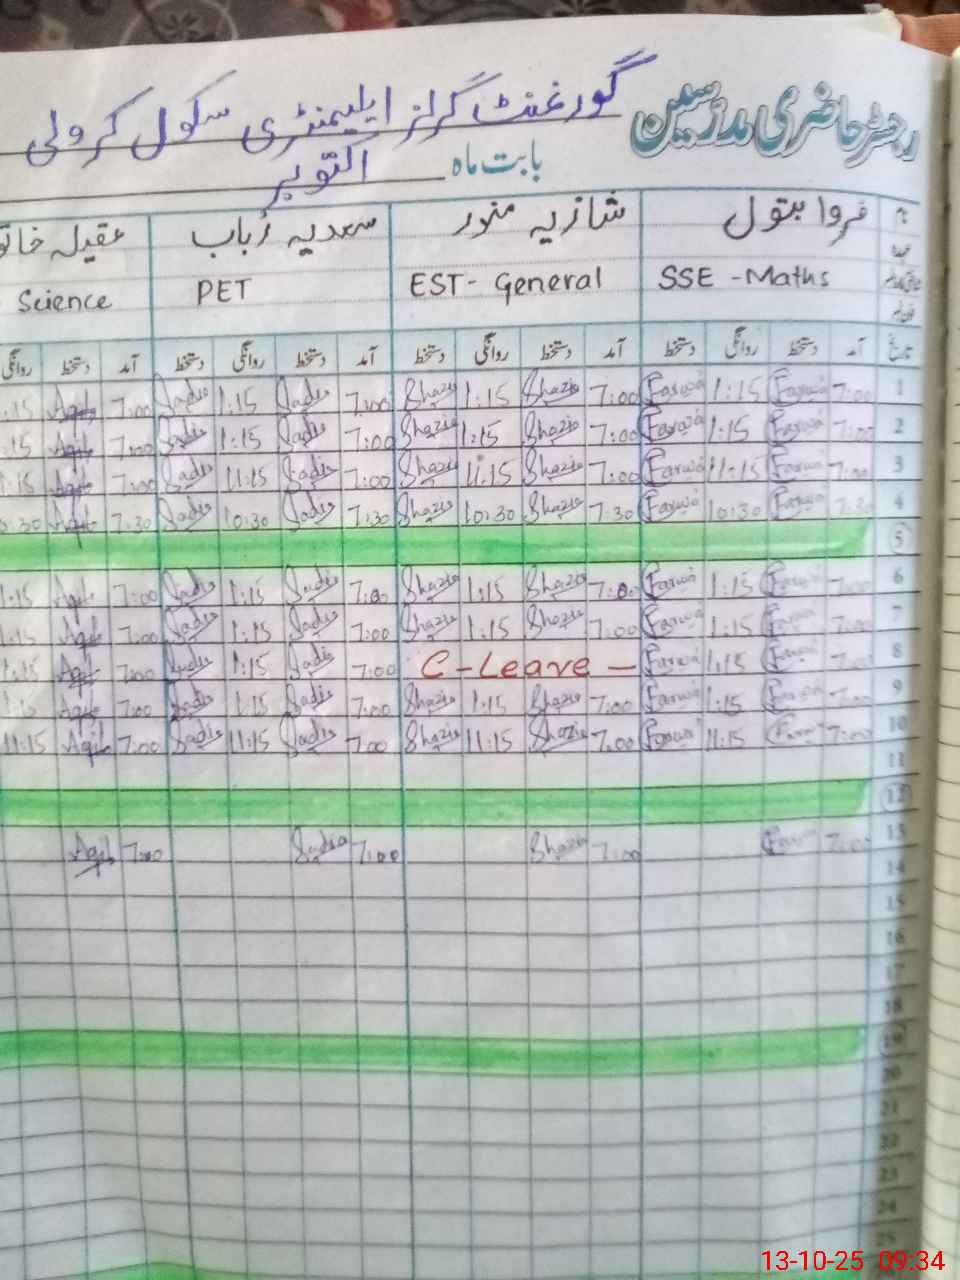 رجسٹر حاضری مدرسین گورنمنٹ گرلز ایلیمنٹری سکول کرولی
بابت ماہ اکتوبر
نام فروا بتول شازیہ منور سعدیہ رُباب عقیلہ خاتو
عہدہ SSE -Maths EST- General PET Science
تاریخ آمد دستخط روانگی دستخط آمد دستخط روانگی دستخط آمد دستخط روانگی دستخط آمد دستخط روانگی
1 7:00 Farwa 1:15 Farwa 7:00 Shazia 1:15 Shazia 7:00 Sadia 1:15 Sadia 7:00 Aqila :15
2 7:00 Farwa 1:15 Farwa 7:00 Shazia 1:15 Shazia 7:00 Sadia 1:15 Sadia 7:00 Aqila :15
3 7:00 Farwa 11:15 Farwa 7:00 Shazia 11:15 Shazia 7:00 Sadia 11:15 Sadia 7:00 Aqila :15
4 7:30 Farwa 10:30 Farwa 7:30 Shazia 10:30 Shazia 7:30 Sadia 10:30 Sadia 7:30 Aqila :30
5
6 7:00 Farwa 1:15 Farwa 7:00 Shazia 1:15 Shazia 7:00 Sadia 1:15 Sadia 7:00 Aqila 1:15
7 7:00 Farwa 1:15 Farwa 7:00 Shazia 1:15 Shazia 7:00 Sadia 1:15 Sadia 7:00 Aqila 1:15
8 7:00 Farwa 1:15 Farwa C-Leave - 7:00 Sadia 1:15 Sadia 7:00 Aqila 1:15
9 7:00 Farwa 1:15 Farwa 7:00 Shazia 1:15 Shazia 7:00 Sadia 1:15 Sadia 7:00 Aqila 1:15
10 7:00 Farwa 11:15 Farwa 7:00 Shazia 11:15 Shazia 7:00 Sadia 11:15 Sadia 7:00 Aqila 11:15
11
12
13 7:00 Farwa 7:00 Shazia 7:00 Sadia 7:00 Aqila
14
15
16
17
18
19
20
21
22
23
24
25
13-10-25 09:34